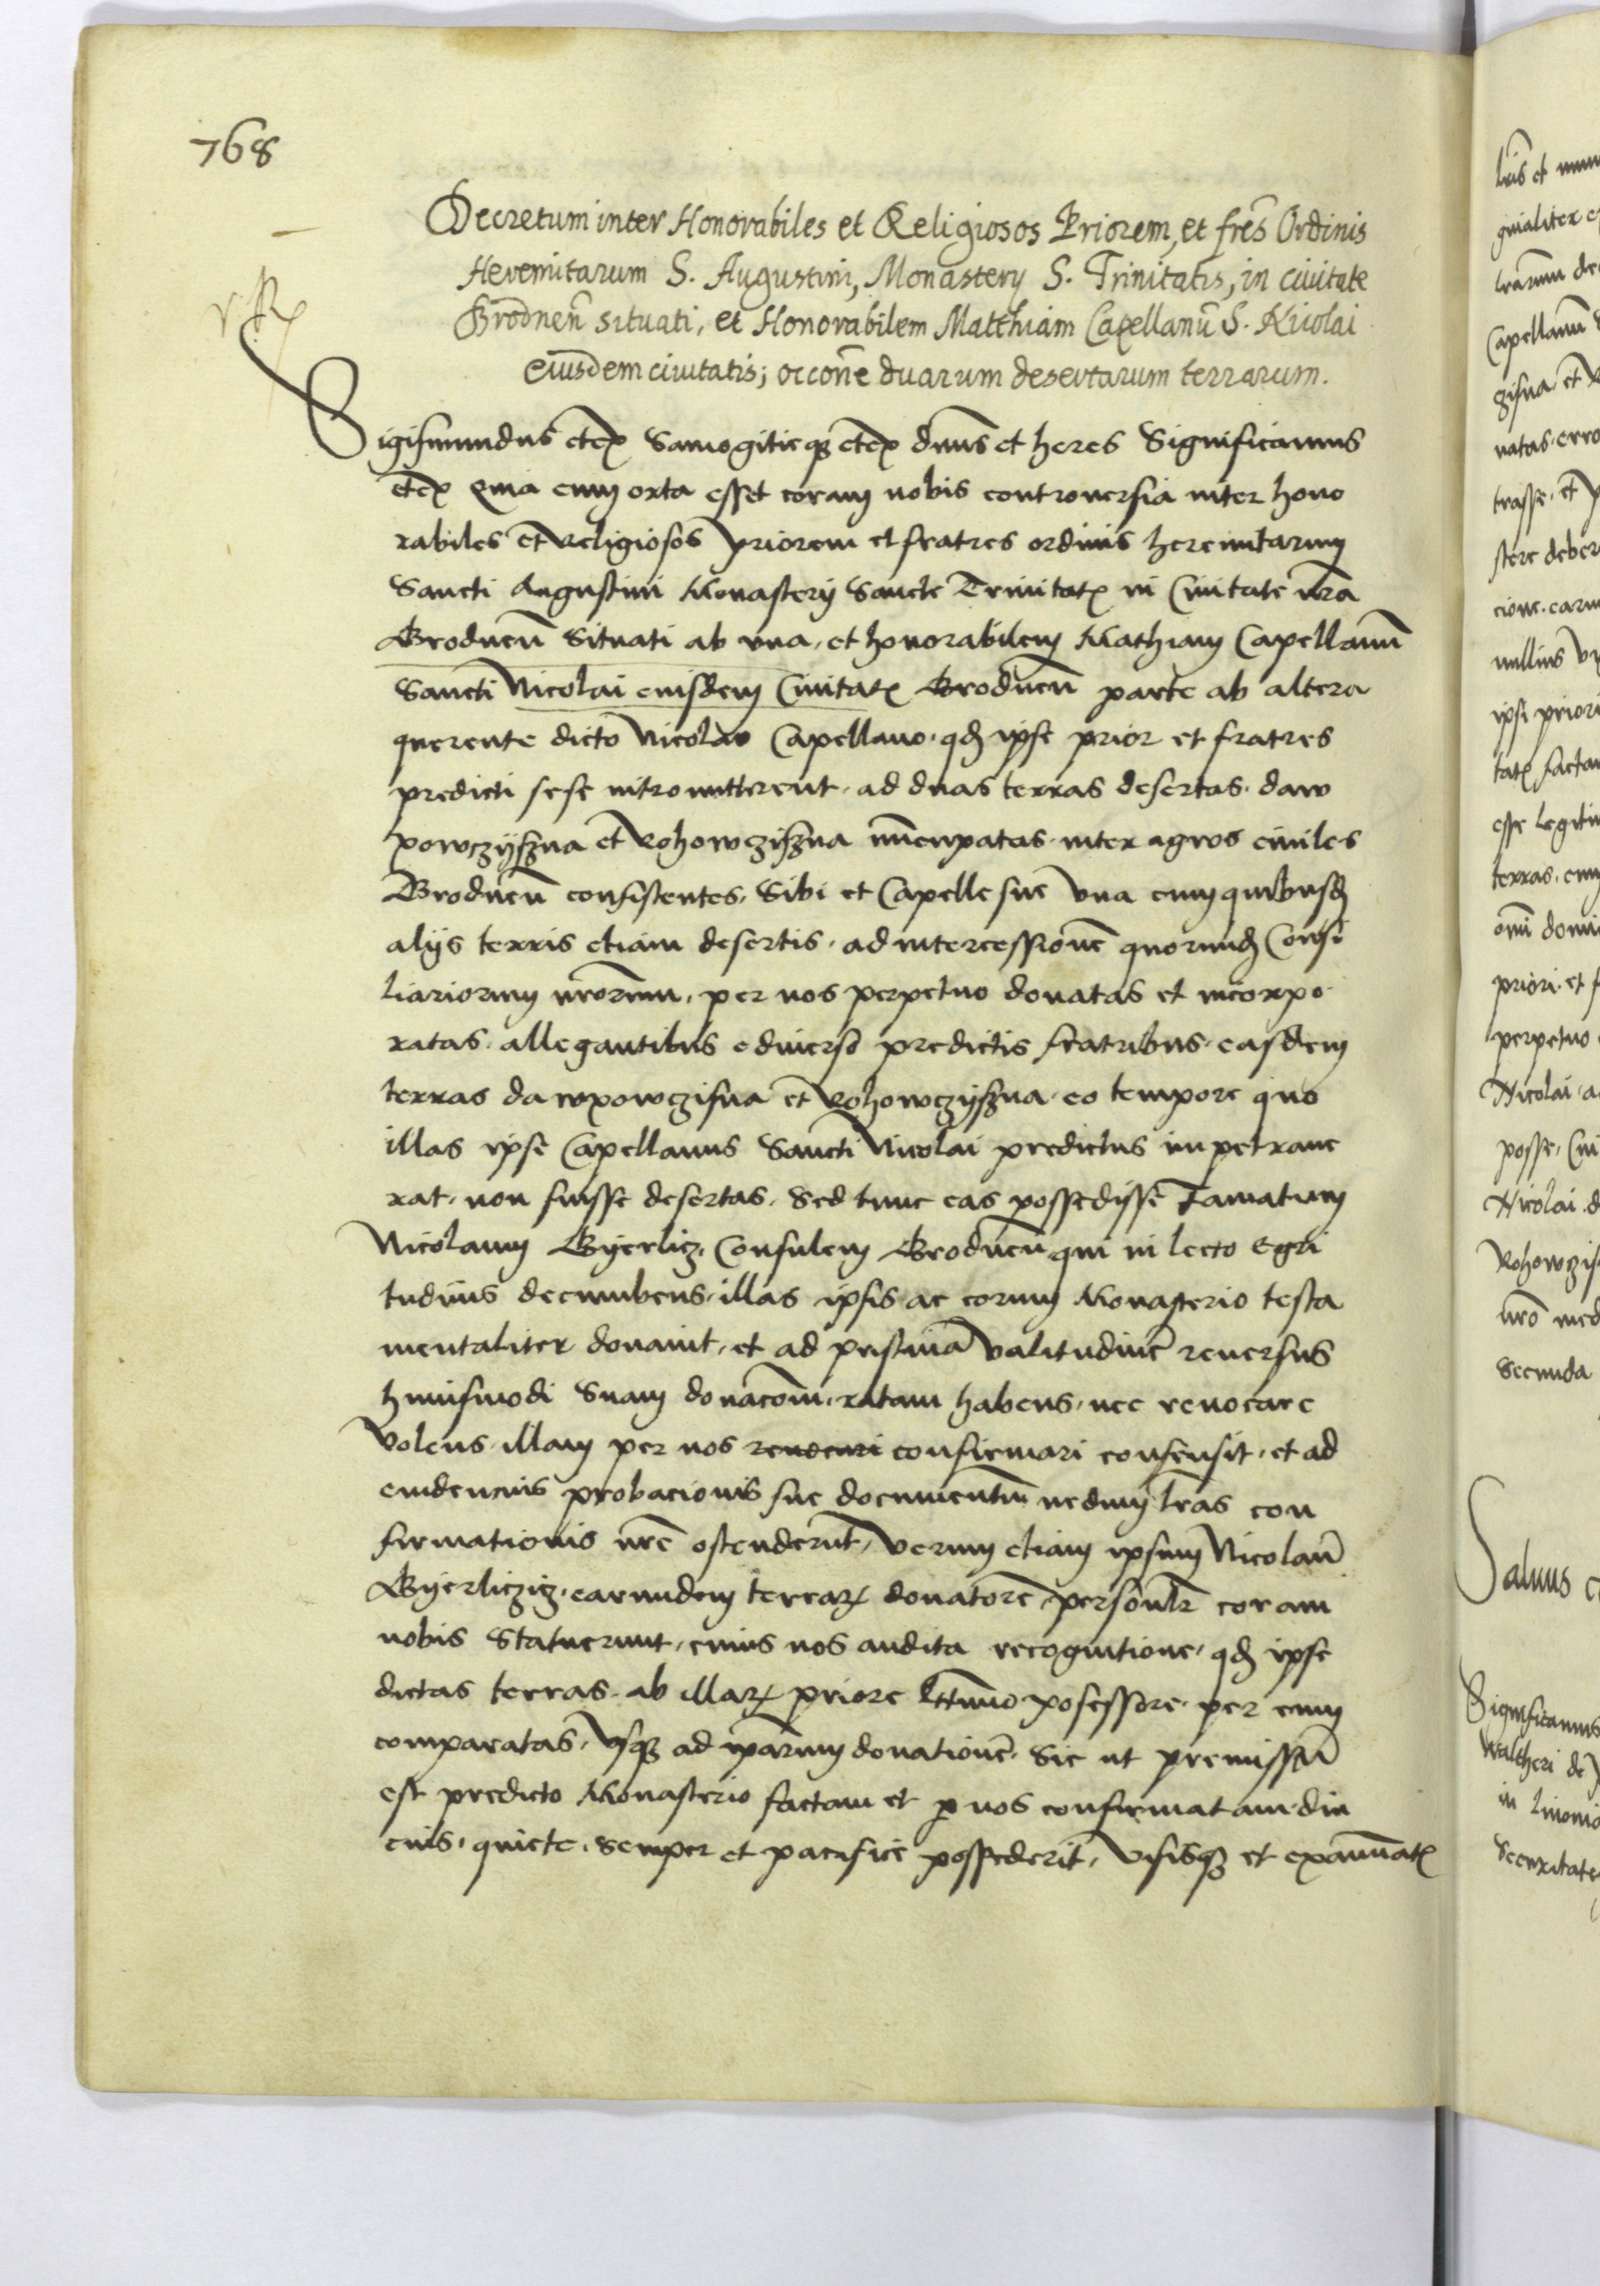 768
Decretum inter Honorabiles et Religiosos Priorem, et fres Ordinis
Heremitarum S. Augustini, Monastery S. Trinitatis, in ciuitate
Grodnen situati, et Honorabilem Matthiam Capellanu S. Nicolai
eiusdem ciuitatis; occone duarum desertarum terrarum.
Sigismundus etc Samogitieq etc dnus et heres Significamus
etc Quia cum orta esset coram nobis controuersia inter hono
rabiles et Religiosos priorem et fratres ordinis heremitarum
Sancti Augustini Monasterij Sancte Trinitatis in Ciuitate nra
Grodnen Situati ab vna, et honorabilem Mathiam Capellanu
Sancti Nicolai eiusdem Ciuitatis Grodnen parte ab altera
querente dicto Nicolao Capellano. qd ipse prior et fratres
predicti sese intromitterent. ad duas terras desertas. daw
powczyszna et Rohowczyszna nucupatas. inter agros ciuiles
Grodnen consistentes, Sibi et Capelle sue vna cum quibusd
alijs terris etiam desertis. ad intercessione quorund Consi
liariorum nrorum, per nos perpetuo donatas et incorpo
ratas. allegantibus ediuerso predictis fratribus. easdem
terras dawpowczisna et Rohowczyszna. eo tempore quo
illas ipse Capellanus Sancti Nicolai predictus impetraue
rat. non fuisse desertas. Sed tunc eas possedisse Famatum
Nicolaum Gyerlicz, Consulem Grodnen qui in lecto Egri
tudinis decumbens, illas ipsis ac eorum Monasterio testa
mentaliter donauit, et ad pristina valitudine reuersus
huiusmodi Suam donacom, ratam habens, nec reuocare
volens. illam per nos confirmari consensit, et ad
euidencius probacionis sue documentu nedum lras con
firmationis nre ostenderut, verum etiam ipsum Nicolau
Gyerliczicz. earundem terrar donatore personlr coram
nobis Statuerunt, cuius nos audita recognitione, qd ipse
dictas terras. ab illar priore lttimo posessore. per eum
comparatas, vsq ad iparum donatione, Sic ut premissu
est predicto Monasterio factam et p nos confirmatam. diu
cius, quiete, semper et pacifice possederit, visisq et examinat